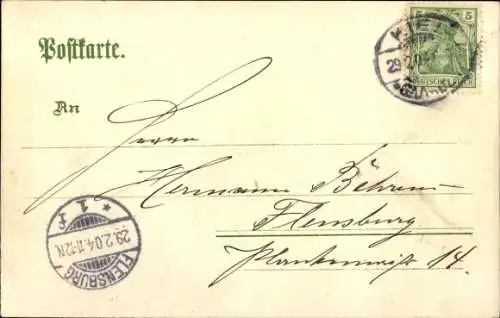 Postkarte.
5 5
KIEL
29.2.04
DEUTSCHES REICH
An
Herrn
Hermann Behrens
Flensburg
14.
* 1 f
29.2.04.11-12N.
FLENSBURG